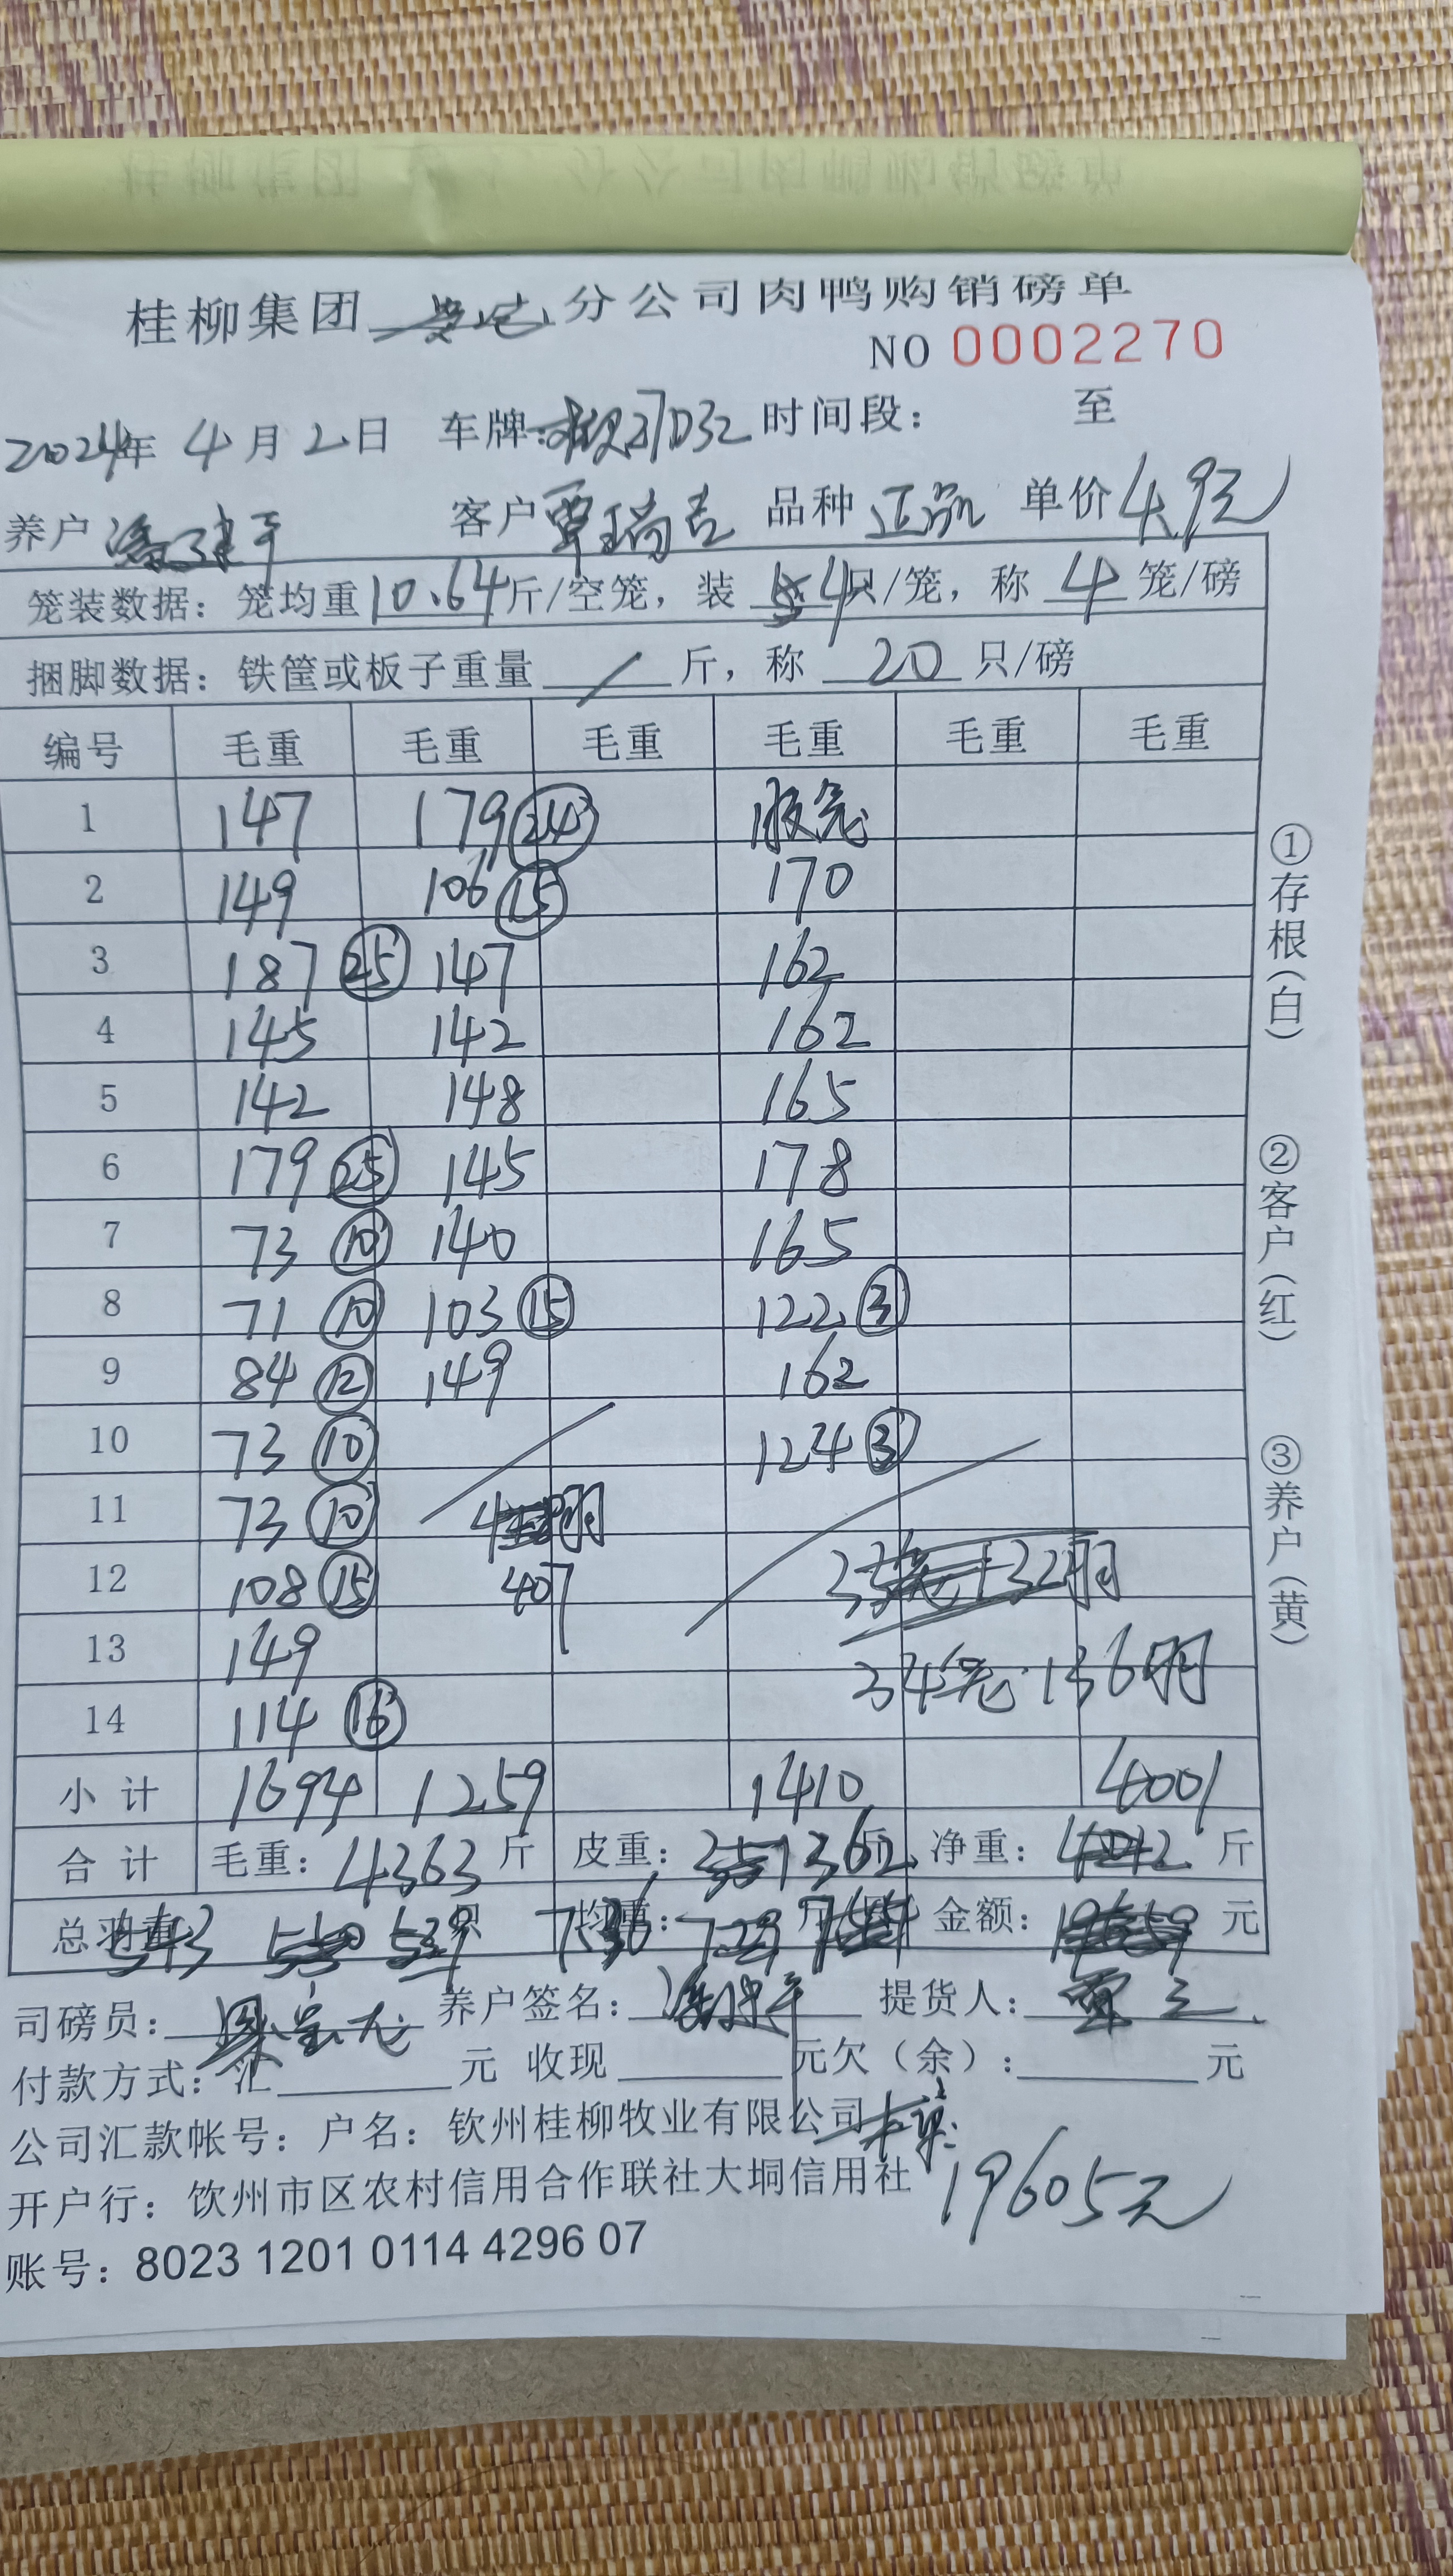 桂柳集团 分公司肉鸭购销磅单
NO 0002270
2024年 4月2日 车牌: 7D32 时间段: 至
养户 潘建平 客户 覃瑞吉 品种 正品 单价 4.9元
笼装数据: 笼均重10.64斤/空笼, 装 4只/笼, 称 4 笼/磅
捆脚数据: 铁筐或板子重量 / 斤, 称 20 只/磅
编号 毛重 毛重 毛重 毛重 毛重 毛重
1 147 179 24
2 149 106 15 170
3 187 25 147 162
4 145 142 162
5 142 148 165
6 179 25 145 178
7 73 10 140 165
8 71 10 103 15 122 3
9 84 12 149 162
10 73 10 124 3
11 73 10
12 108 15 407
13 149
14 114 16 34笼 136羽
小计 1694 1259 1410 4001
合计 毛重: 4363 斤 皮重: 362 斤 净重: 斤
543 539 只 7.36 均重: 斤 金额: 元
司磅员: 养户签名: 潘建平 提货人: 覃
付款方式: 汇 元 收现 元欠(余): 元
公司汇款帐号: 户名: 钦州桂柳牧业有限公司
开户行: 饮州市区农村信用合作联社大垌信用社
19605元
账号: 8023 1201 0114 4296 07
①存根(白)
②客户(红)
③养户(黄)